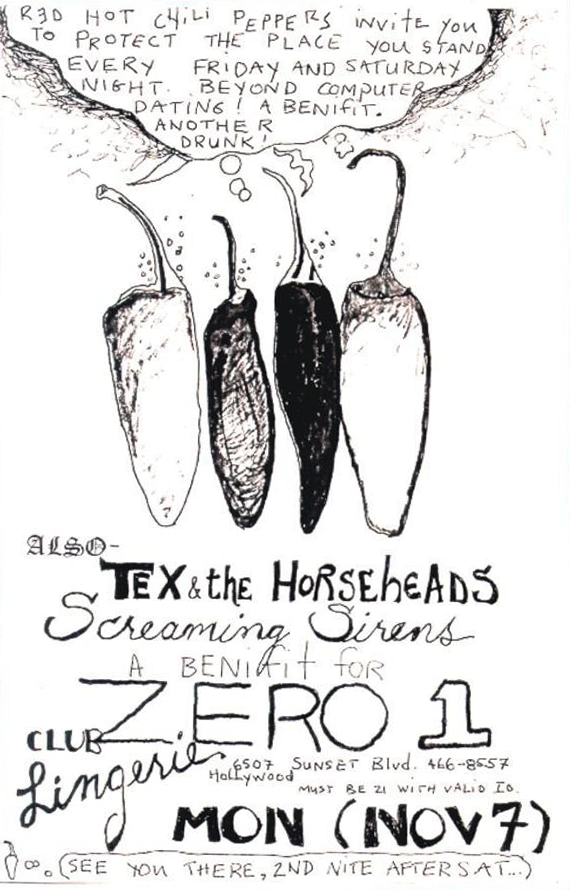 R3D HOT CHiLi PEPPERS iNViTE YOU
TO PROTECT THE PLACE YOU STAND
EVERY FRIDAY AND SATURDAY
NIGHT. BEYOND COMPUTER
DATING! A BENIFIT.
ANOTHER
DRUNK!
ALSO-
TEX & the HORSEheADS
Screaming Sirens
A BENIFIT FOR
ZERO 1
CLUB
Lingerie
6507 SUNSET Blvd. 466-8557
Hollywood
MUST BE 21 WITH VALID ID.
MON (NOV 7)
(SEE YOU THERE, 2ND NITE AFTER SAT...)